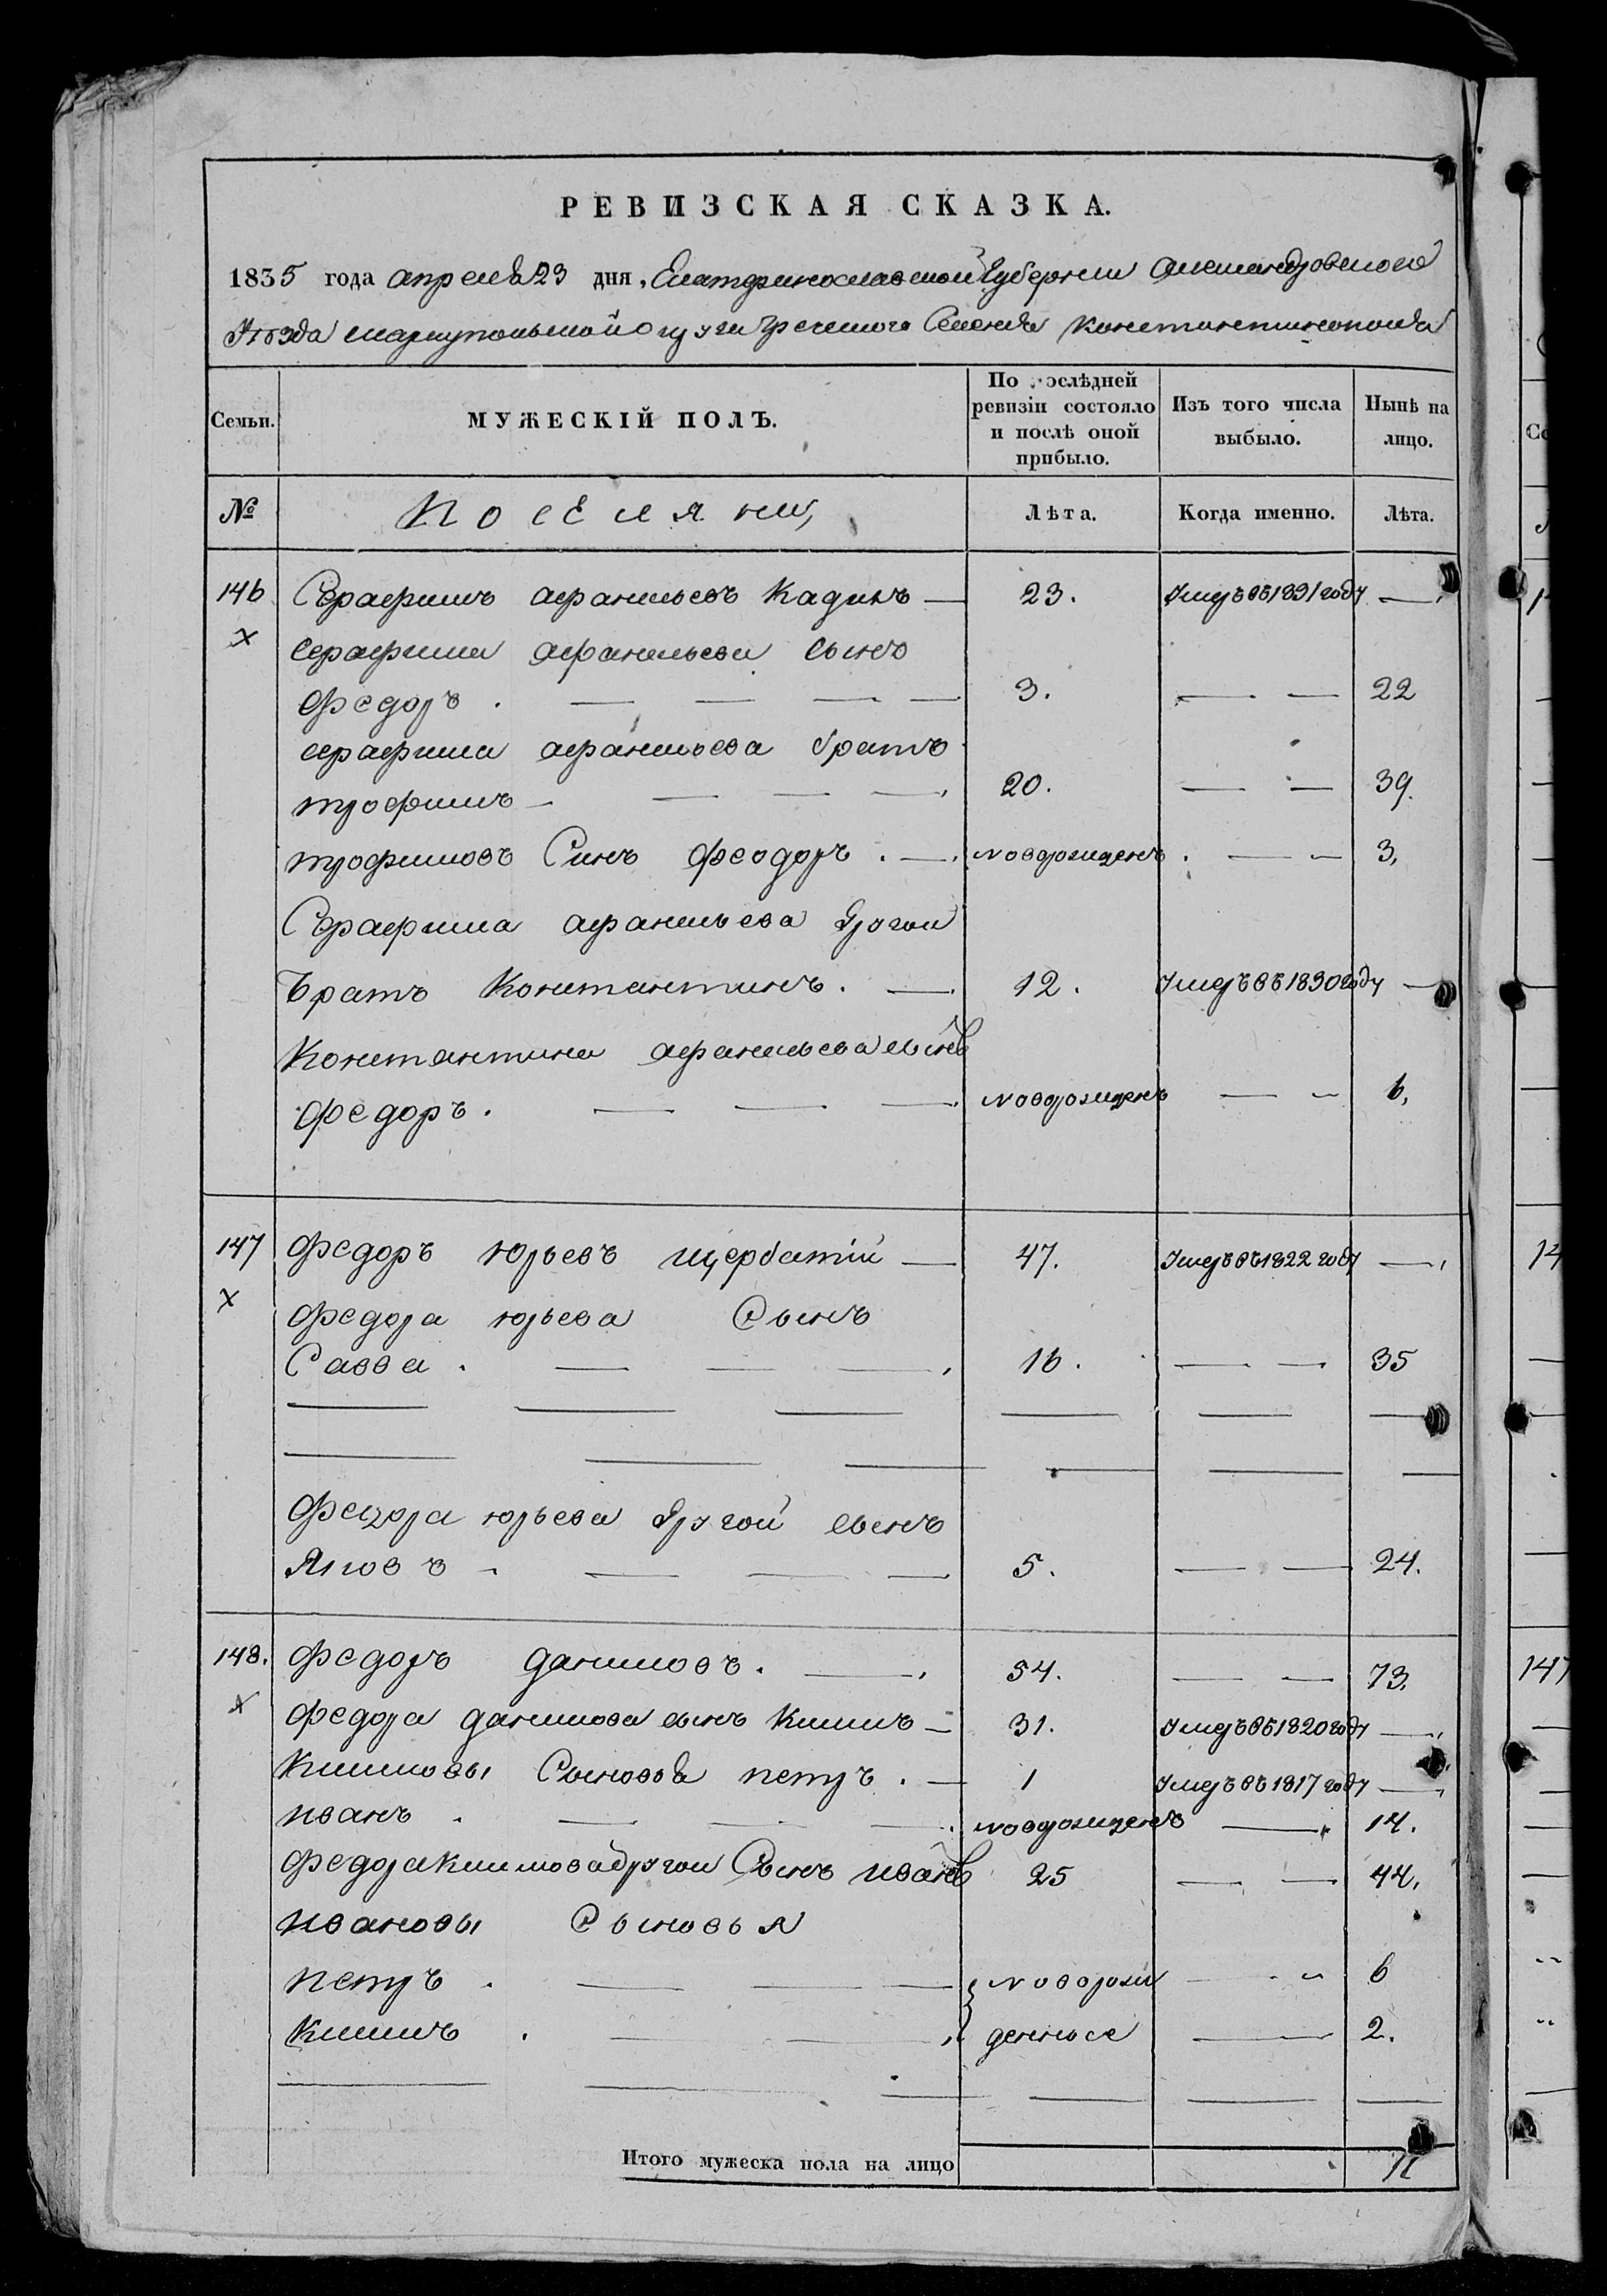 РЕВИЗСКАЯ СКАЗКА.
1835 года апреля 23 дня, Екатеринославской Губернии Александровского
Уезда мариупольской округи Греческого Селения Константинополя
Семьи. МУЖЕСКІЙ ПОЛЪ. По послѣдней ревизіи состояло и послѣ оной прибыло. Изъ того числа выбыло. Нынѣ на лицо.
№ Поселяни, Лѣта. Когда именно. Лѣта.
146 Серафимъ афанасьевъ Кадинъ — 23. Умеръ въ 1831 году —
х серафима афанасьева сынъ
Федоръ . — — — — 3. — — 22
серафима афанасьева братъ
трофимъ — — — — 20. — — 39.
трофимовъ Синъ феодоръ . — новорожденъ . — — 3.
Серафима афанасьева другои
Братъ Константинъ . — 12. Умеръ въ 1830 году —
Константина афанасьева сынъ
федоръ . — — — новорожденъ — — 6.
147 Федоръ Юрьевъ щербатій — 47. Умеръ въ 1822 году —
х Федора юрьева Сынъ
Савва . — — — 16. — — 35
Федора юрьева другой сынъ
Яковъ — — — — 5. — — 24.
148. Федоръ даниловъ . — 54. — — 73.
х Федора данилова сынъ Кишъ — 31. Умеръ въ 1820 году —
Сыновья петръ . — 1 Умеръ въ 1817 году —
иванъ . — — — новорожденъ — 14.
Федора другои Сынъ иванъ 25 — — 44.
ивановы Сыновья
петръ . — — — новорож — — 6
. — — денные — 2.
Итого мужеска пола на лицо 11